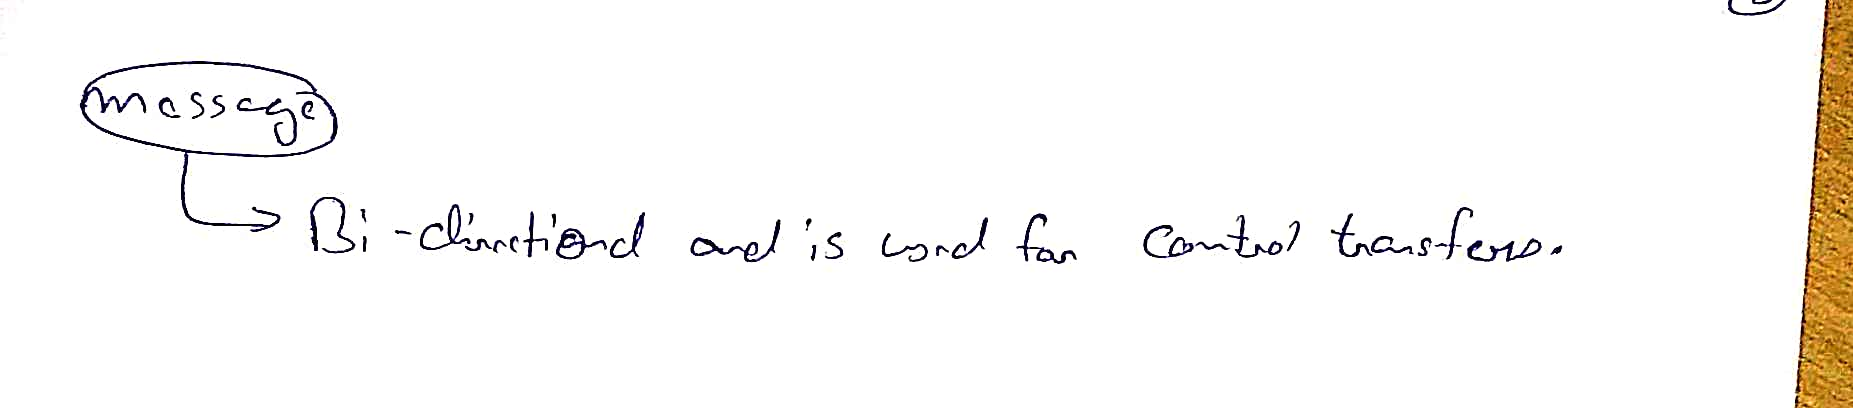 message
Bi-directional and is used for control transfers.